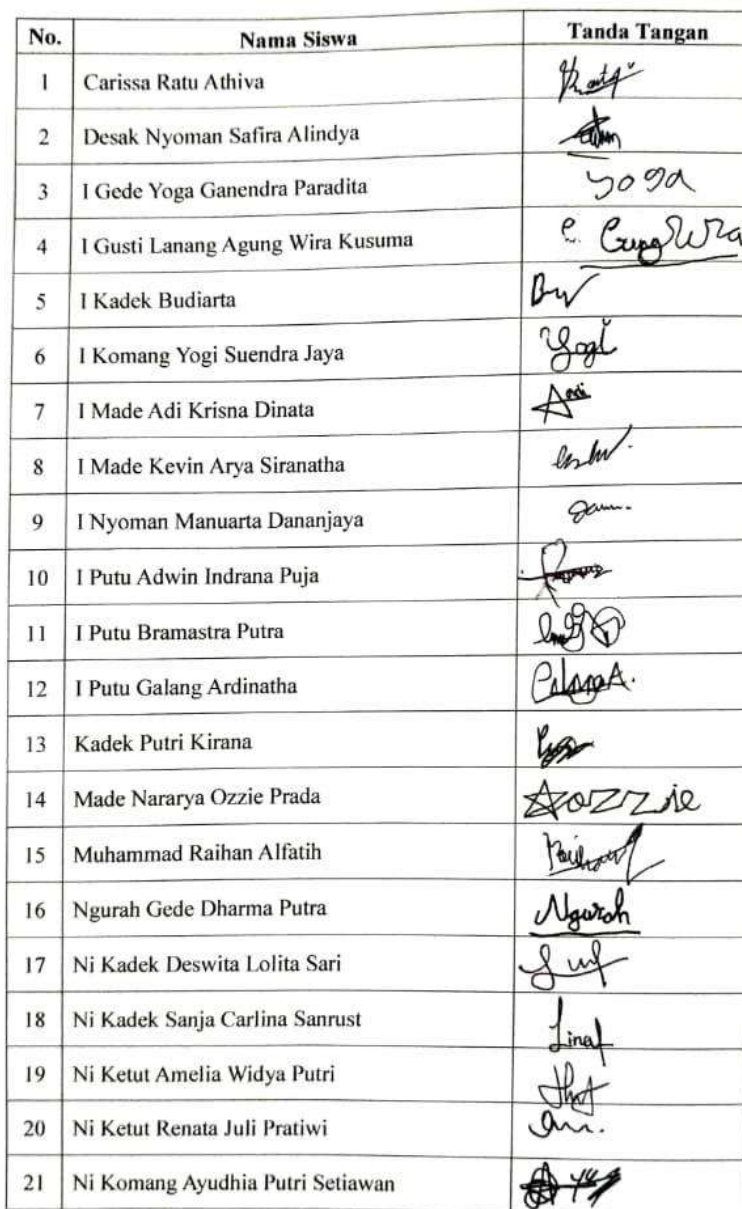 No. Nama Siswa Tanda Tangan
1 Carissa Ratu Athiva
2 Desak Nyoman Safira Alindya
3 I Gede Yoga Ganendra Paradita yoga
4 I Gusti Lanang Agung Wira Kusuma
5 I Kadek Budiarta
6 I Komang Yogi Suendra Jaya Yogi
7 I Made Adi Krisna Dinata Adi
8 I Made Kevin Arya Siranatha
9 I Nyoman Manuarta Dananjaya
10 I Putu Adwin Indrana Puja
11 I Putu Bramastra Putra
12 I Putu Galang Ardinatha
13 Kadek Putri Kirana
14 Made Nararya Ozzie Prada ozzie
15 Muhammad Raihan Alfatih Raihan
16 Ngurah Gede Dharma Putra Ngurah
17 Ni Kadek Deswita Lolita Sari
18 Ni Kadek Sanja Carlina Sanrust Lina
19 Ni Ketut Amelia Widya Putri
20 Ni Ketut Renata Juli Pratiwi
21 Ni Komang Ayudhia Putri Setiawan